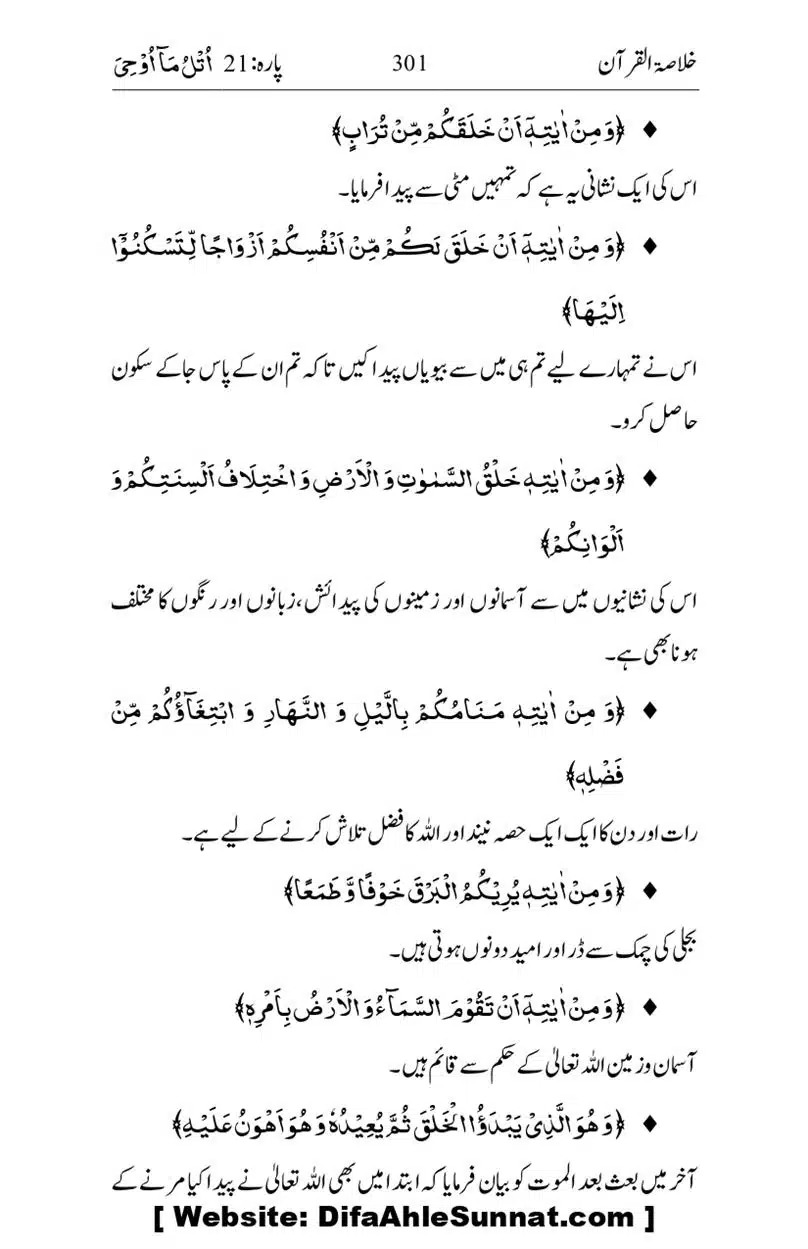 خلاصۃ القرآن 301 پارہ:21 اُتْلُ مَاۤ اُوْحِیَ
♦ ﴿وَ مِنْ اٰیٰتِهٖۤ اَنْ خَلَقَكُمْ مِّنْ تُرَابٍ﴾
اس کی ایک نشانی یہ ہے کہ تمہیں مٹی سے پیدا فرمایا۔
♦ ﴿وَ مِنْ اٰیٰتِهٖۤ اَنْ خَلَقَ لَكُمْ مِّنْ اَنْفُسِكُمْ اَزْوَاجًا لِّتَسْكُنُوْۤا
اِلَیْهَا﴾
اس نے تمہارے لیے تم ہی میں سے بیویاں پیدا کیں تاکہ تم ان کے پاس جاکے سکون
حاصل کرو۔
♦ ﴿وَ مِنْ اٰیٰتِهٖ خَلْقُ السَّمٰوٰتِ وَ الْاَرْضِ وَ اخْتِلَافُ اَلْسِنَتِكُمْ وَ
اَلْوَانِكُمْ﴾
اس کی نشانیوں میں سے آسمانوں اور زمینوں کی پیدائش، زبانوں اور رنگوں کا مختلف
ہونا بھی ہے۔
♦ ﴿وَ مِنْ اٰیٰتِهٖ مَنَامُكُمْ بِالَّیْلِ وَ النَّهَارِ وَ ابْتِغَآؤُكُمْ مِّنْ
فَضْلِهٖ﴾
رات اور دن کا ایک ایک حصہ نیند اور اللہ کا فضل تلاش کرنے کے لیے ہے۔
♦ ﴿وَ مِنْ اٰیٰتِهٖ یُرِیْكُمُ الْبَرْقَ خَوْفًا وَّ طَمَعًا﴾
بجلی کی چمک سے ڈر اور امید دونوں ہوتی ہیں۔
♦ ﴿وَ مِنْ اٰیٰتِهٖۤ اَنْ تَقُوْمَ السَّمَآءُ وَ الْاَرْضُ بِاَمْرِهٖ﴾
آسمان و زمین اللہ تعالیٰ کے حکم سے قائم ہیں۔
♦ ﴿وَ هُوَ الَّذِیْ یَبْدَؤُا الْخَلْقَ ثُمَّ یُعِیْدُهٗ وَ هُوَ اَهْوَنُ عَلَیْهِ﴾
آخر میں بعث بعد الموت کو بیان فرمایا کہ ابتدا میں بھی اللہ تعالیٰ نے پیدا کیا مرنے کے
[ Website: DifaAhleSunnat.com ]